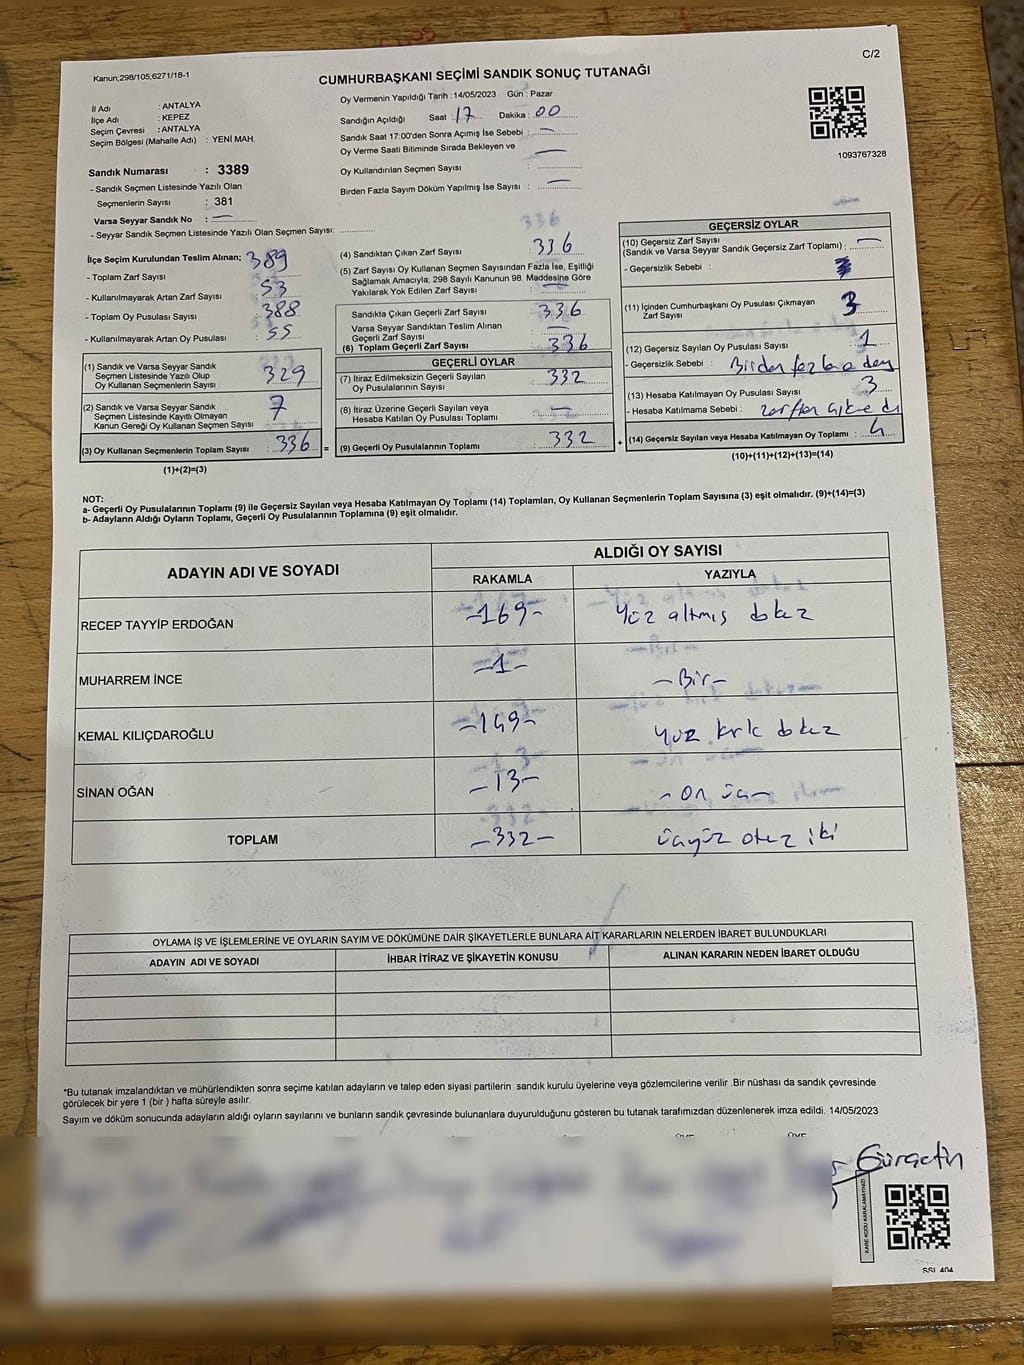 Kanun;298/105;6271/18-1
C/2
CUMHURBAŞKANI SEÇİMİ SANDIK SONUÇ TUTANAĞI
İl Adı : ANTALYA
İlçe Adı : KEPEZ
Seçim Çevresi : ANTALYA
Seçim Bölgesi (Mahalle Adı) : YENİ MAH.
Sandık Numarası : 3389
- Sandık Seçmen Listesinde Yazılı Olan
Seçmenlerin Sayısı : 381
Varsa Seyyar Sandık No : —
- Seyyar Sandık Seçmen Listesinde Yazılı Olan Seçmen Sayısı: ............
Oy Vermenin Yapıldığı Tarih : 14/05/2023 Gün : Pazar
Sandığın Açıldığı Saat : 17 Dakika : 00
Sandık Saat 17:00'den Sonra Açımış İse Sebebi : —
Oy Verme Saati Bitiminde Sırada Bekleyen ve —
Oy Kullandırılan Seçmen Sayısı :
Birden Fazla Sayım Döküm Yapılmış İse Sayısı : —
1093767328
İlçe Seçim Kurulundan Teslim Alınan; 389
- Toplam Zarf Sayısı
- Kullanılmayarak Artan Zarf Sayısı 53
- Toplam Oy Pusulası Sayısı 388
- Kullanılmayarak Artan Oy Pusulası : 55
(1) Sandık ve Varsa Seyyar Sandık
Seçmen Listesinde Yazılı Olup
Oy Kullanan Seçmenlerin Sayısı 329
(2) Sandık ve Varsa Seyyar Sandık
Seçmen Listesinde Kayıtlı Olmayan
Kanun Gereği Oy Kullanan Seçmen Sayısı 7
(3) Oy Kullanan Seçmenlerin Toplam Sayısı : 336 =
(1)+(2)=(3)
336
(4) Sandıktan Çıkan Zarf Sayısı : 336
(5) Zarf Sayısı Oy Kullanan Seçmen Sayısından Fazla İse, Eşitliği
Sağlamak Amacıyla; 298 Sayılı Kanunun 98. Maddesine Göre
Yakılarak Yok Edilen Zarf Sayısı : —
Sandıkta Çıkan Geçerli Zarf Sayısı : 336
Varsa Seyyar Sandıktan Teslim Alınan
Geçerli Zarf Sayısı : —
(6) Toplam Geçerli Zarf Sayısı : 336
GEÇERLİ OYLAR
(7) İtiraz Edilmeksizin Geçerli Sayılan
Oy Pusulalarının Sayısı : 332
(8) İtiraz Üzerine Geçerli Sayılan veya
Hesaba Katılan Oy Pusulası Toplamı : —
(9) Geçerli Oy Pusulalarının Toplamı : 332 +
GEÇERSİZ OYLAR
(10) Geçersiz Zarf Sayısı
(Sandık ve Varsa Seyyar Sandık Geçersiz Zarf Toplamı) : —
- Geçersizlik Sebebi :
(11) İçinden Cumhurbaşkanı Oy Pusulası Çıkmayan
Zarf Sayısı 3
(12) Geçersiz Sayılan Oy Pusulası Sayısı : 1
- Geçersizlik Sebebi : Birden fazla
(13) Hesaba Katılmayan Oy Pusulası Sayısı : 3
- Hesaba Katılmama Sebebi :
(14) Geçersiz Sayılan veya Hesaba Katılmayan Oy Toplamı : 4
(10)+(11)+(12)+(13)=(14)
NOT:
a- Geçerli Oy Pusulalarının Toplamı (9) ile Geçersiz Sayılan veya Hesaba Katılmayan Oy Toplamı (14) Toplamları, Oy Kullanan Seçmenlerin Toplam Sayısına (3) eşit olmalıdır. (9)+(14)=(3)
b- Adayların Aldığı Oyların Toplamı, Geçerli Oy Pusulalarının Toplamına (9) eşit olmalıdır.
ADAYIN ADI VE SOYADI
ALDIĞI OY SAYISI
RAKAMLA
YAZIYLA
RECEP TAYYİP ERDOĞAN -169- Yüz altmış dokuz
MUHARREM İNCE -1- -Bir-
KEMAL KILIÇDAROĞLU -149- Yüz kırk dokuz
SİNAN OĞAN -13- -on üç-
TOPLAM -332- üçyüz otuz iki
OYLAMA İŞ VE İŞLEMLERİNE VE OYLARIN SAYIM VE DÖKÜMÜNE DAİR ŞİKAYETLERLE BUNLARA AİT KARARLARIN NELERDEN İBARET BULUNDUKLARI
ADAYIN ADI VE SOYADI
İHBAR İTİRAZ VE ŞİKAYETİN KONUSU
ALINAN KARARIN NEDEN İBARET OLDUĞU
*Bu tutanak imzalandıktan ve mühürlendikten sonra seçime katılan adayların ve talep eden siyasi partilerin sandık kurulu üyelerine veya gözlemcilerine verilir .Bir nüshası da sandık çevresinde
görülecek bir yere 1 (bir ) hafta süreyle asılır.
Sayım ve döküm sonucunda adayların aldığı oyların sayılarını ve bunların sandık çevresinde bulunanlara duyurulduğunu gösteren bu tutanak tarafımızdan düzenlenerek imza edildi. 14/05/2023
ÜYE ÜYE
KARE KODU KARALAMAYINIZ!
SSL 404